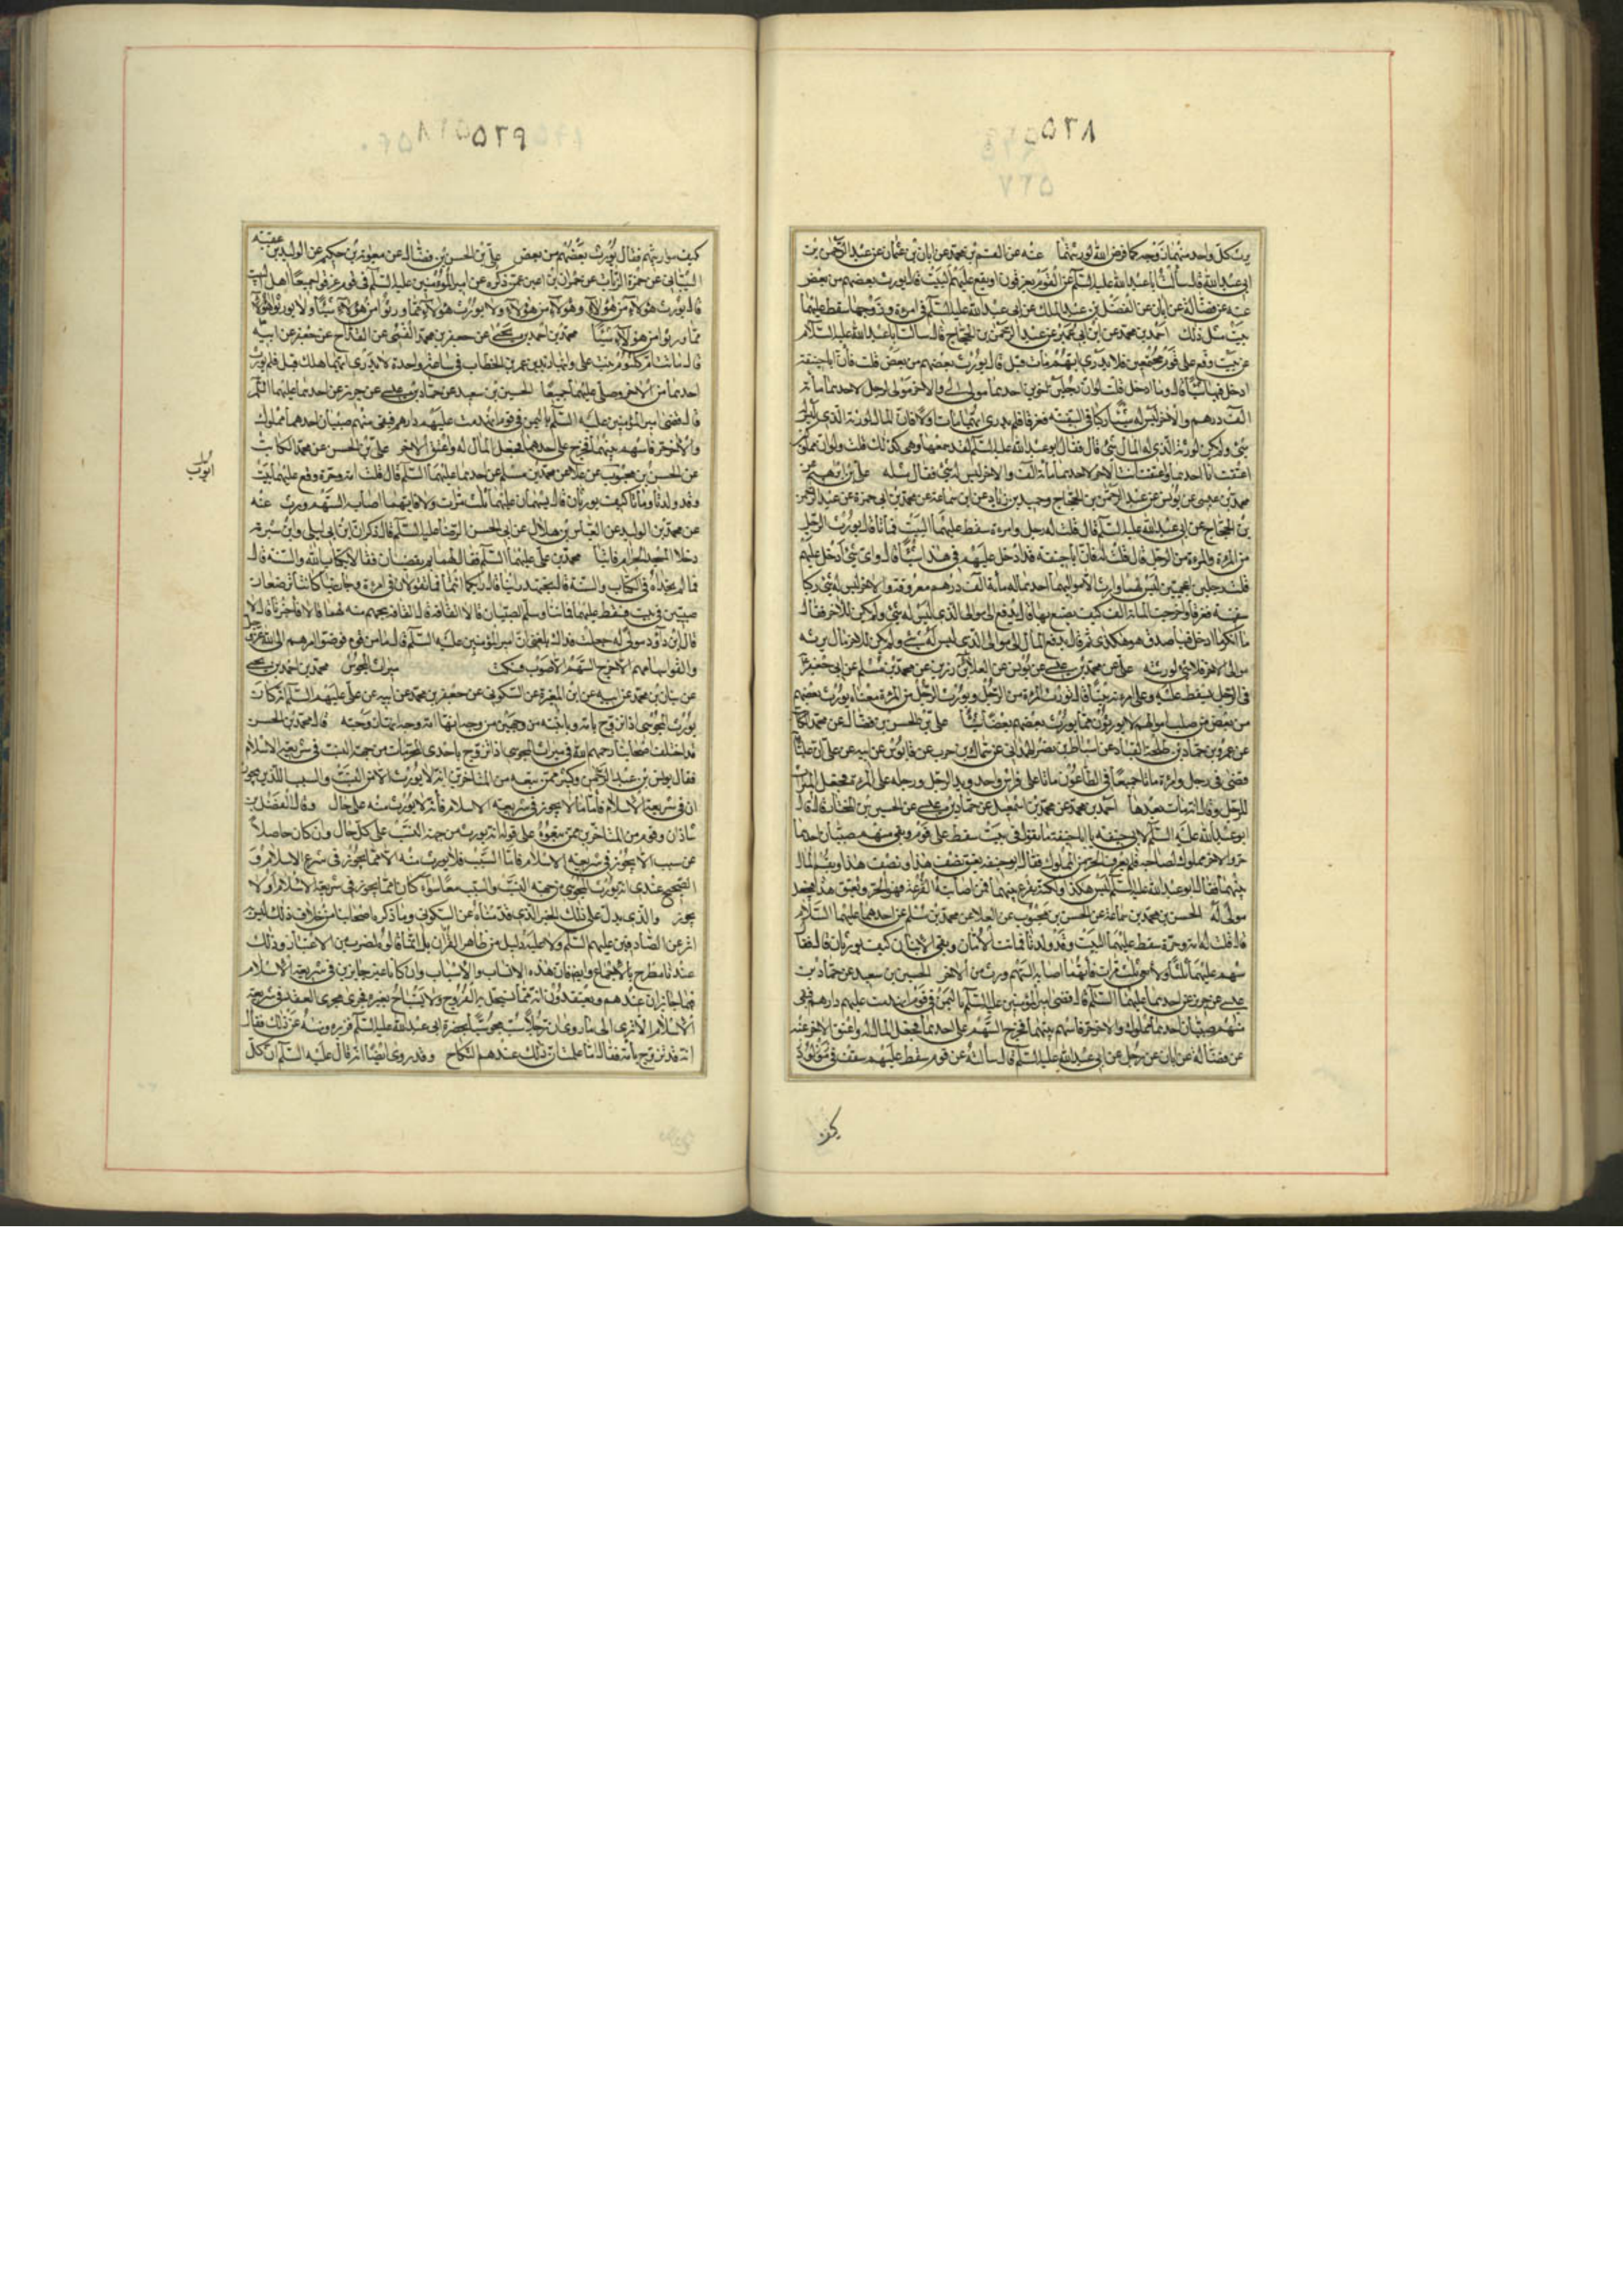 ۵۲۸
۵۲۷
يرث كل واحد منهما زوجه كما فرض الله لورثتهما عنه عن القسم بن محمد عن ابان بن عثمان عن عبد الرحمن بن
ابي عبد الله قال سألت ابا عبد الله عليه السلم عن القوم يغرقون او يقع عليهم البيت قال يورث بعضهم من بعض
عنه عن فضالة عن ابان عن الفضل بن عبد الملك عن ابي عبد الله عليه السلم في امرءة وزوجها سقط عليهما
بيت مثل ذلك احمد بن محمد عن ابن ابي عمير عن عبد الرحمن بن الحجاج قال سألت ابا عبد الله عليه السلام
عن بيت وقع على قوم مجتمعين فلا يدرى ايهم مات قبل قال يورث بعضهم من بعض قلت فان ابا حنيفة
ادخل فيها شيئا قال وما ادخل قلت لو ان رجلين اخوين احدهما مولى لي والاخر مولى لرجل لاحدهما مائة
الف درهم والاخر ليس له شيء ركبا في السفينة فغرقا فلم يدرى ايهما مات اولا فان المال لورثة الذي ليس له
شيء ولم يكن لورثة الذي له المال شيء قال فقال ابو عبد الله عليه السلم لقد سمعها وهي كذلك قلت ولو ان مملوكين
اعتقت انا احدهما واعتقت انت الاخر لاحدهما مائة الف والاخر ليس له شيء فقال مثله علي بن ابرهيم عن
محمد بن عيسى عن يونس عن عبد الرحمن بن الحجاج وحميد بن زياد عن ابن سماعة عن محمد بن ابي حمزة عن عبد الرحمن
بن الحجاج عن ابي عبد الله عليه السلم قال قلت له رجل وامرءة سقط عليهما البيت فماتا قال يورث الرجل
من المرءة والمرءة من الرجل قال قلت له فان ابا حنيفة قد ادخل عليهم في هذا شيئا قال واي شيء ادخل عليهم
قلت رجلين اعجميين ليس لهما وارث الا مواليهما احدهما له مائة الف درهم معروفة والاخر ليس له شيء ركبا
سفينة فغرقا واخرجت المائة الف كيف يصنع بها قال يدفع الى موالي الذي ليس له شيء ولم يكن للاخر فقال
ما انكر ما ادخل فيها صدق هو هكذى ثم قال يدفع المال الى موالي الذي ليس له شيء ولم يكن للاخر مال يرثه
موالي الاخر فلا شيء لورثته علي عن محمد بن عيسى عن يونس عن العلاء بن رزين عن محمد بن مسلم عن ابي جعفر ع
في الرجل يسقط عليه وعلى امرءته بيت قال تورث المرءة من الرجل ويورث الرجل من المرءة معناه يورث بعضهم
من بعض من صلب اموالهم لا يورثون مما يورث بعضهم بعضا شيئا علي بن الحسن بن فضال عن محمد الكاتب
عن عمرو بن حماد بن طلحة القناد عن اسباط بن نصر الهمداني عن سماك بن حرب عن قابوس عن ابيه عن علي ان عليا
قضى في رجل وامرءة ماتا جميعا في الطاعون ماتا على فراش واحد ويد الرجل ورجله على المرءة فجعل الميراث
للرجل وقال انه مات بعدها احمد بن محمد عن محمد بن اسمعيل عن حماد بن عيسى عن الحسين بن المختار قال قال
ابو عبد الله عليه السلم لابي حنيفة يا ابا حنيفة ما تقول في بيت سقط على قوم وبقي منهم صبيان احدهما
حر والاخر مملوك لصاحبه فلم يعرف الحر من المملوك فقال ابو حنيفة يعتق نصف هذا ونصف هذا ويقسم المال
بينهما فقال ابو عبد الله عليه السلم ليس هكذا ولكنه يقرع بينهما فمن اصابته القرعة فهو الحر ويعتق هذا فيجعل
مولى له الحسن بن محمد بن سماعة عن الحسن بن محبوب عن العلا عن محمد بن مسلم عن احدهما عليهما السلام
قال قلت له امة وحرة سقط عليهما البيت وقد ولدتا فماتت الامان وبقي الابنان كيف يورثان قال فقال
يسهم عليهما ثلثا ولاء ثلث مرات فايهما اصابه السهم ورث من الاخر الحسين بن سعيد عن حماد بن
عيسى عن حريز عن احدهما عليهما السلم قال قضى امير المؤمنين عليه السلم باليمن في قوم انهدمت عليهم دارهم فبقي
منهم صبيان احدهما مملوك والاخر حر فاسهم بينهما فخرج السهم على احدهما فجعل المال له واعتق الاخر عنه
عن فضالة عن ابان عن رجل عن ابي عبد الله عليه السلم قال سألته عن قوم سقط عليهم سقف
كيف
۵۲۹
كيف مواريثهم فقال يورث بعضهم من بعض علي بن الحسن بن فضال عن معوية بن حكيم عن الوليد بن عقبة
الشيباني عن حمزة الزيات عن حمران بن اعين عمن ذكره عن امير المؤمنين عليه السلم في قوم غرقوا جميعا اهل البيت
قال يورث هؤلاء من هؤلاء وهؤلاء من هؤلاء ولا يورث هؤلاء مما ورثوا من هؤلاء شيئا ولا يورث هؤلاء
مما ورثوا من هؤلاء شيئا محمد بن احمد بن يحيى عن جعفر بن محمد القمي عن القداح عن جعفر عن ابيه
قال ماتت ام كلثوم بنت علي وابنها زيد بن عمر بن الخطاب في ساعة واحدة لا يدرى ايهما هلك قبل فلم يورث
احدهما من الاخر وصلى عليهما جميعا الحسين بن سعيد عن حماد بن عيسى عن حريز عن احدهما عليهما السلم
قال قضى امير المؤمنين عليه السلم باليمن في قوم انهدمت عليهم دارهم فبقي منهم صبيان احدهما مملوك
والاخر حر فاسهم بينهما فخرج على احدهما فجعل المال له واعتق الاخر علي بن الحسن عن محمد الكاتب
عن الحسن بن محبوب عن علا عن محمد بن مسلم عن احدهما عليهما السلم قال قلت امة وحرة وقع عليهما بيت
وقد ولدتا وماتا كيف يورثان قال يسهمان عليهما ثلث مرات ولاء فايهما اصابه السهم ورث عنه
عن محمد بن الوليد عن العباس بن هلال عن ابي الحسن الرضا عليه السلم قال ذكر ان ابن ابي ليلى وابن شبرمة
دخلا المسجد الحرام فاتيا محمد بن علي عليهما السلم فقال لهما بم يقضيان فقالا بكتاب الله والسنة قال
فما لم تجداه في الكتاب والسنة قالا نجتهد رأينا قال رأيكما انتما فما تقولان في امرءة وجاريتها كانتا ترضعان
صبيين في بيت فسقط عليهما فماتتا وسلم الصبيان قالا القافة قال القافة يجهم منه لهما قالا فاخبرنا قال لا
قال ابن داود مولى له جعلت فداك بلغني ان امير المؤمنين عليه السلم قال ما من قوم فوضوا امرهم الى الله عز وجل
والقوا سهامهم الا خرج السهم الاصوب فسكت ميراث المجوس محمد بن احمد بن يحيى
عن بنان بن محمد عن ابيه عن ابن المغيرة عن السكوني عن جعفر بن محمد عن ابيه عن علي عليهم السلم انه كان
يورث المجوسي اذا تزوج بامه وبابنته من وجهين من وجه انها امه ووجه انها زوجته قال محمد بن الحسن
قد اختلف اصحابنا رحمهم الله في ميراث المجوسي اذا تزوج باحدى المحرمات من جهة النسب في شريعة الاسلام
فقال يونس بن عبد الرحمن وكثير ممن تبعه من المتأخرين انه لا يورث الا من النسب والسبب اللذين يجوزان
ان في شريعة الاسلام فاما ما لا يجوز في شريعة الاسلام فانه لا يورث منه على حال وقال الفضل بن
شاذان وقوم من المتاخرين ممن تبعوه على قوله انه يورث من جهة النسب على كل حال وان كان حاصلا
عن سبب لا يجوز في شريعة الاسلام فاما السبب فلا يورث منه الا مما يجوز في شرع الاسلام و
الصحيح عندى انه يورث المجوسي من جهة النسب والسبب معا سواء كان مما يجوز في شريعة الاسلام او لا
يجوز والذي يدل على ذلك الخبر الذي قدمناه عن السكوني وما ذكره اصحابنا من خلاف ذلك ليس به
اثر عن الصادقين عليهم السلم ولا عليه دليل من ظاهر القرآن بل انما قالوه لضرب من الاعتبار وذلك
عندنا مطرح بالاجماع وايضا فان هذه الانساب والاسباب وان كانا غير جايزين في شريعة الاسلام
فهما جايزان عندهم ويعتقدون انه مما يستحل به الفروج ولا يستباح بغيره فجرى مجرى العقد في شريعة
الاسلام الا ترى الى ما روي ان رجلا سب مجوسيا بحضرة ابي عبد الله عليه السلم فزبره ونهاه عن ذلك فقال
انه قد تزوج بامه فقال اما علمت ان ذلك عندهم النكاح وقد روي ايضا انه قال عليه السلم ان كل